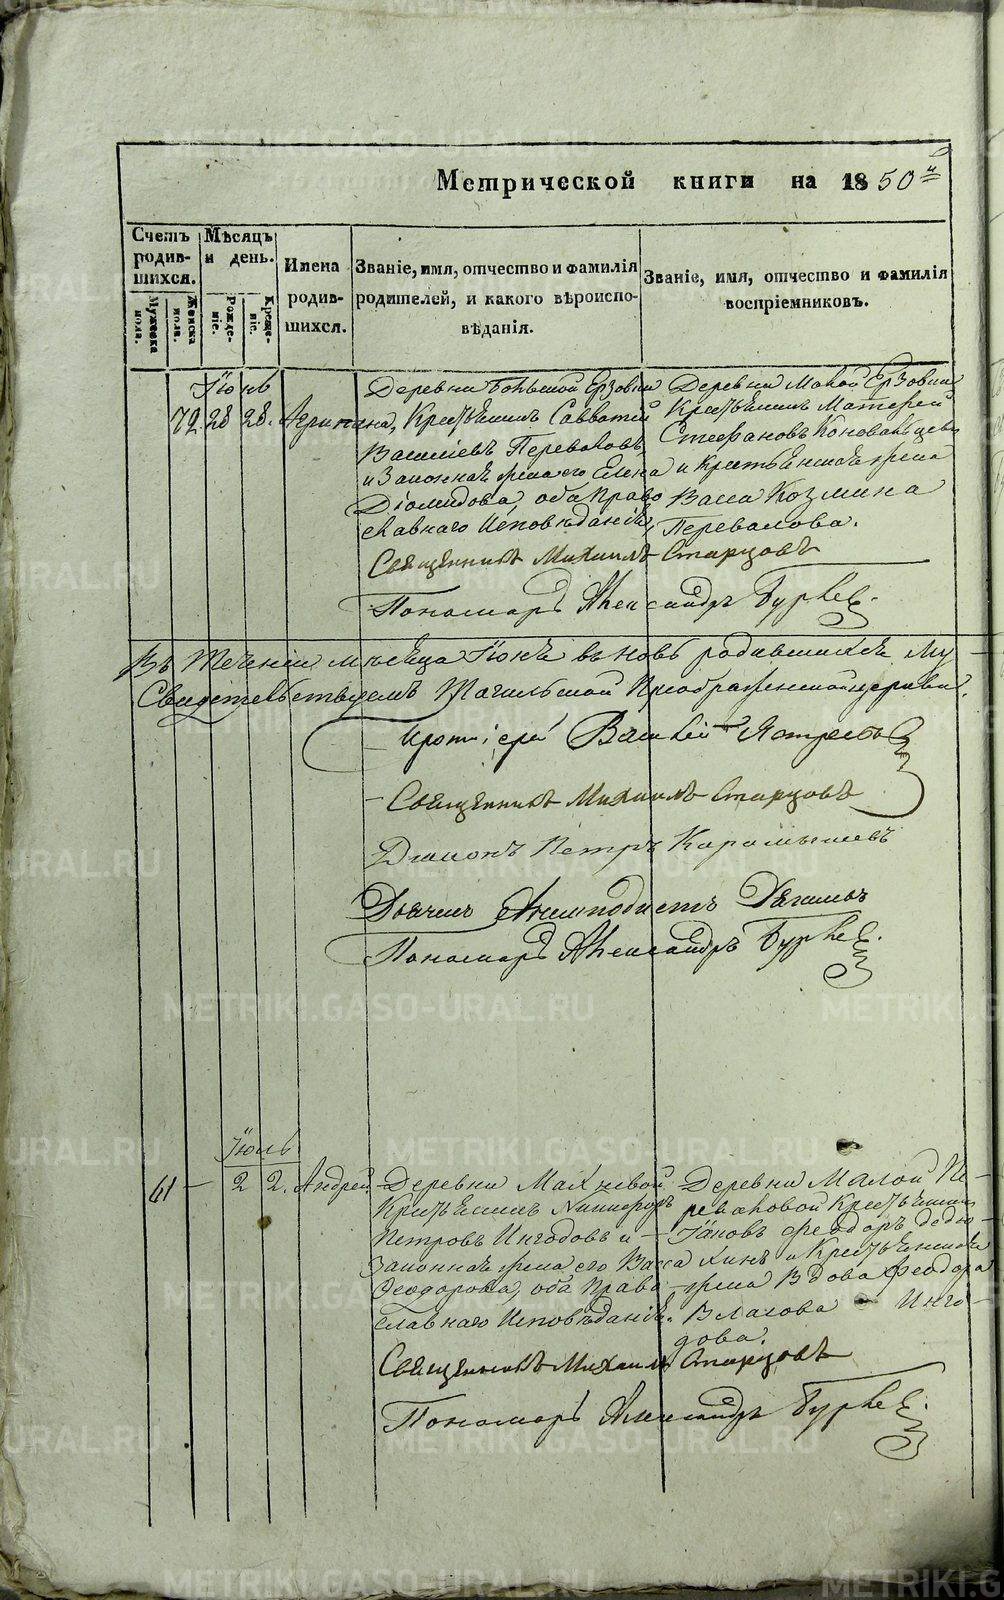 Метрической книги на 1850й
Счетъ родив-шихся.
Мужеска пола.
Женска пола.
Мѣсяцъ и день.
Рожде-ніе.
Креще-ніе.
Имена родив-шихся.
Званіе, имя, отчество и фамилія родителей, и какого вѣроиспо-вѣданія.
Званіе, имя, отчество и фамилія воспріемниковъ.
Іюнь
72. 28 28. Агрипина,
Деревни Большой Ерзовки
Крестьянинъ Савватій
Васильевъ Переваловъ
и Законная жена его Елена
Діомидова оба Право
славнаго Исповѣданія,
Деревни Малой Ерзовки
Крестьянинъ
Стефановъ Коноваловъ
и Крестьянская жена
Васса Козмина
Перевалова.
Священникъ Михаилъ Старцовъ
Пономарь Александръ
Въ теченіи мѣсяца Іюня вновь родившихся
Свидѣтельствуемъ Тагильской Преображенской церкви.
Протоіерей Василій
Священникъ Михаилъ Старцовъ
Діаконъ Петръ Карамышевъ
Дьячекъ Анемподистъ Дягилевъ
Пономарь Александръ
Іюль
41 — 2 2. Андрей.
Деревни Махневой
Крестьянинъ Никифоръ
Петровъ Ингодовъ и
Законная жена его Васса
Феодорова, оба Право
славнаго Исповѣданія.
Деревни Малой Пе-
реваловой Крестьянинъ
Іаковъ Феодоръ Дедю-
хинъ и Крестьянская
жена Вдова Феодора
Власова Инго-
дова.
Священникъ Михаилъ Старцовъ
Пономарь Александръ
METRIKI.GASO-URAL.RU